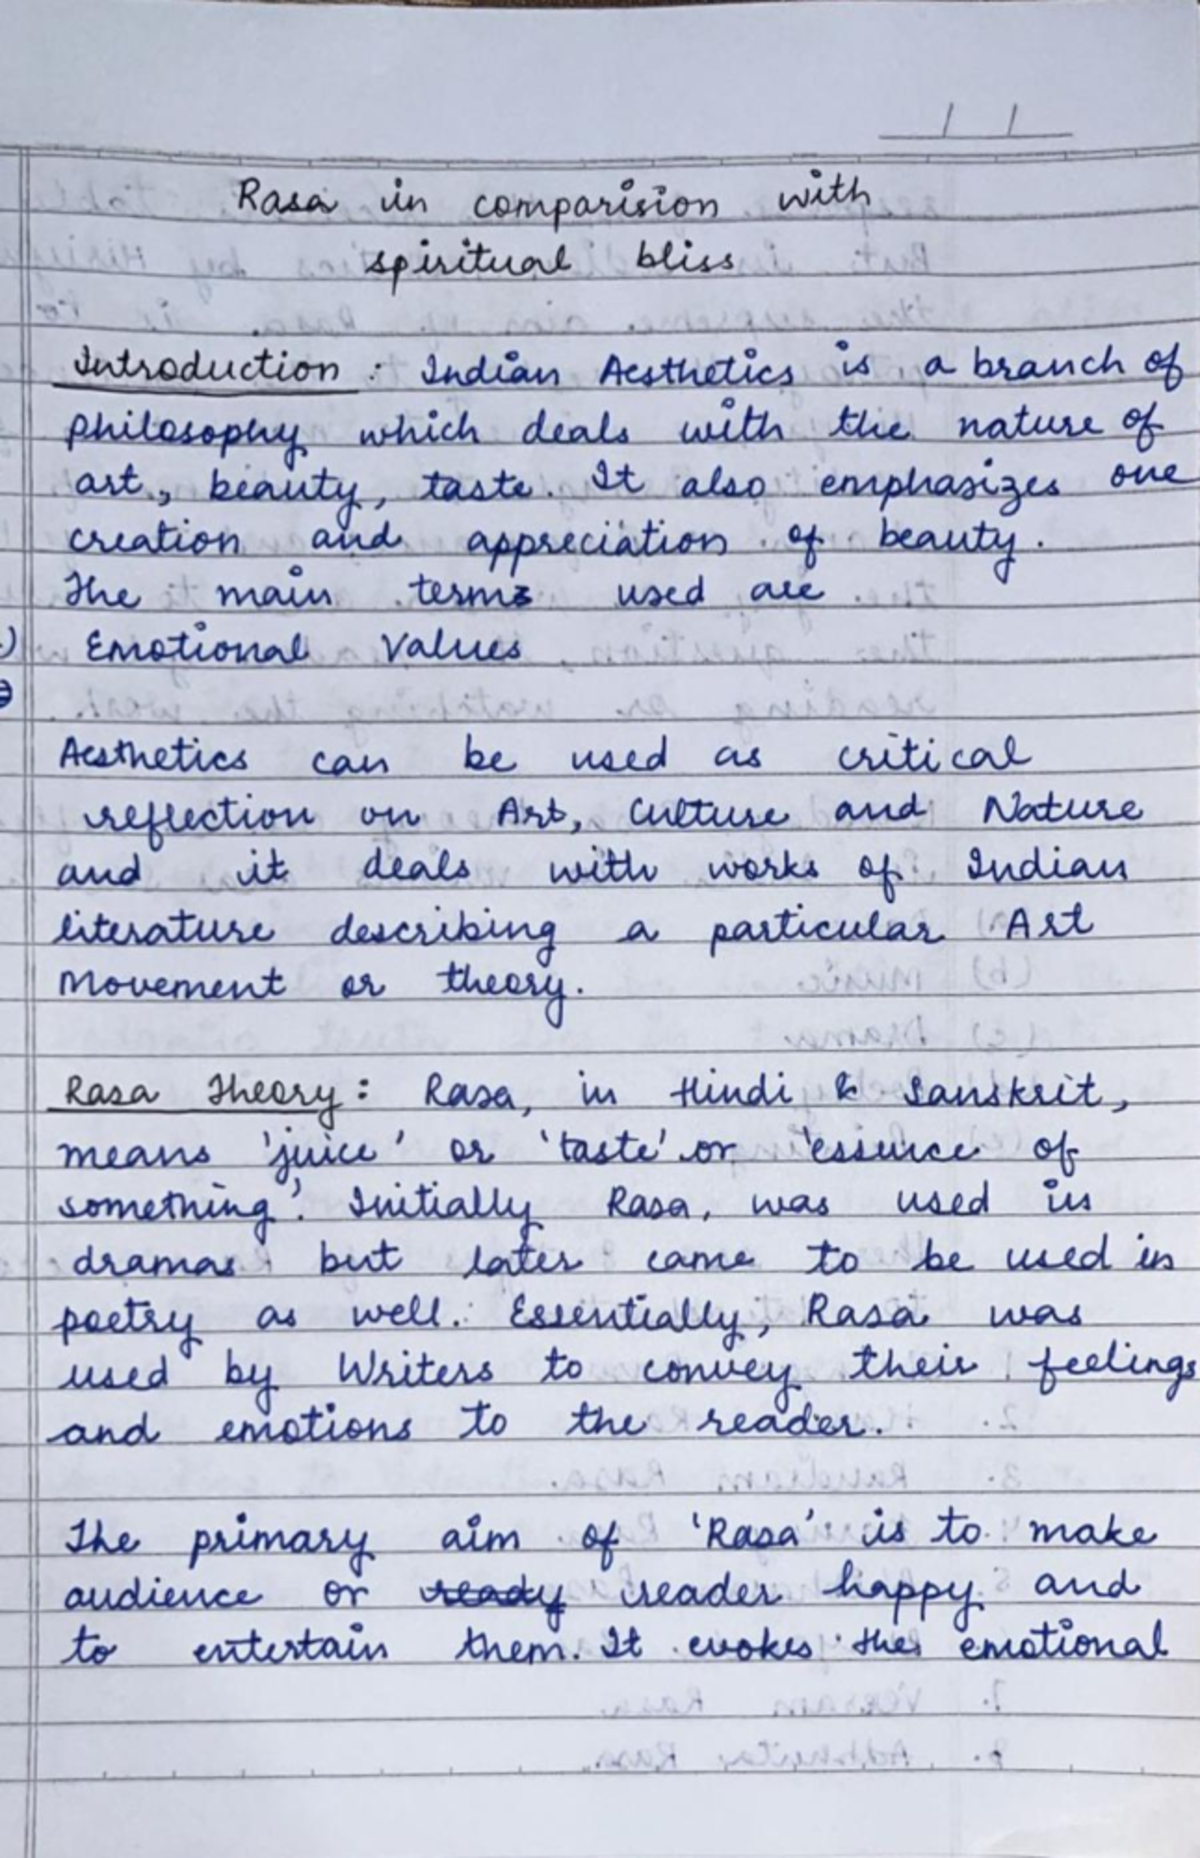 Rasa in comparision with
spiritual bliss
Introduction : Indian Aesthetics is a branch of
philosophy which deals with the nature of
art, beauty, taste. It also emphasizes one
creation and appreciation of beauty.
The main terms used are
) Emotional Values
Aesthetics can be used as critical
reflection on Art, Culture and Nature
and it deals with works of Indian
literature describing a particular Art
Movement or theory.
Rasa Theory : Rasa, in Hindi & Sanskrit,
means 'juice' or 'taste' or 'essence of
something'. Initially Rasa, was used in
dramas but later came to be used in
poetry as well. Essentially, Rasa was
used by Writers to convey their feelings
and emotions to the reader.
The primary aim of 'Rasa' is to make
audience or ready reader happy and
to entertain them. It evokes the emotional